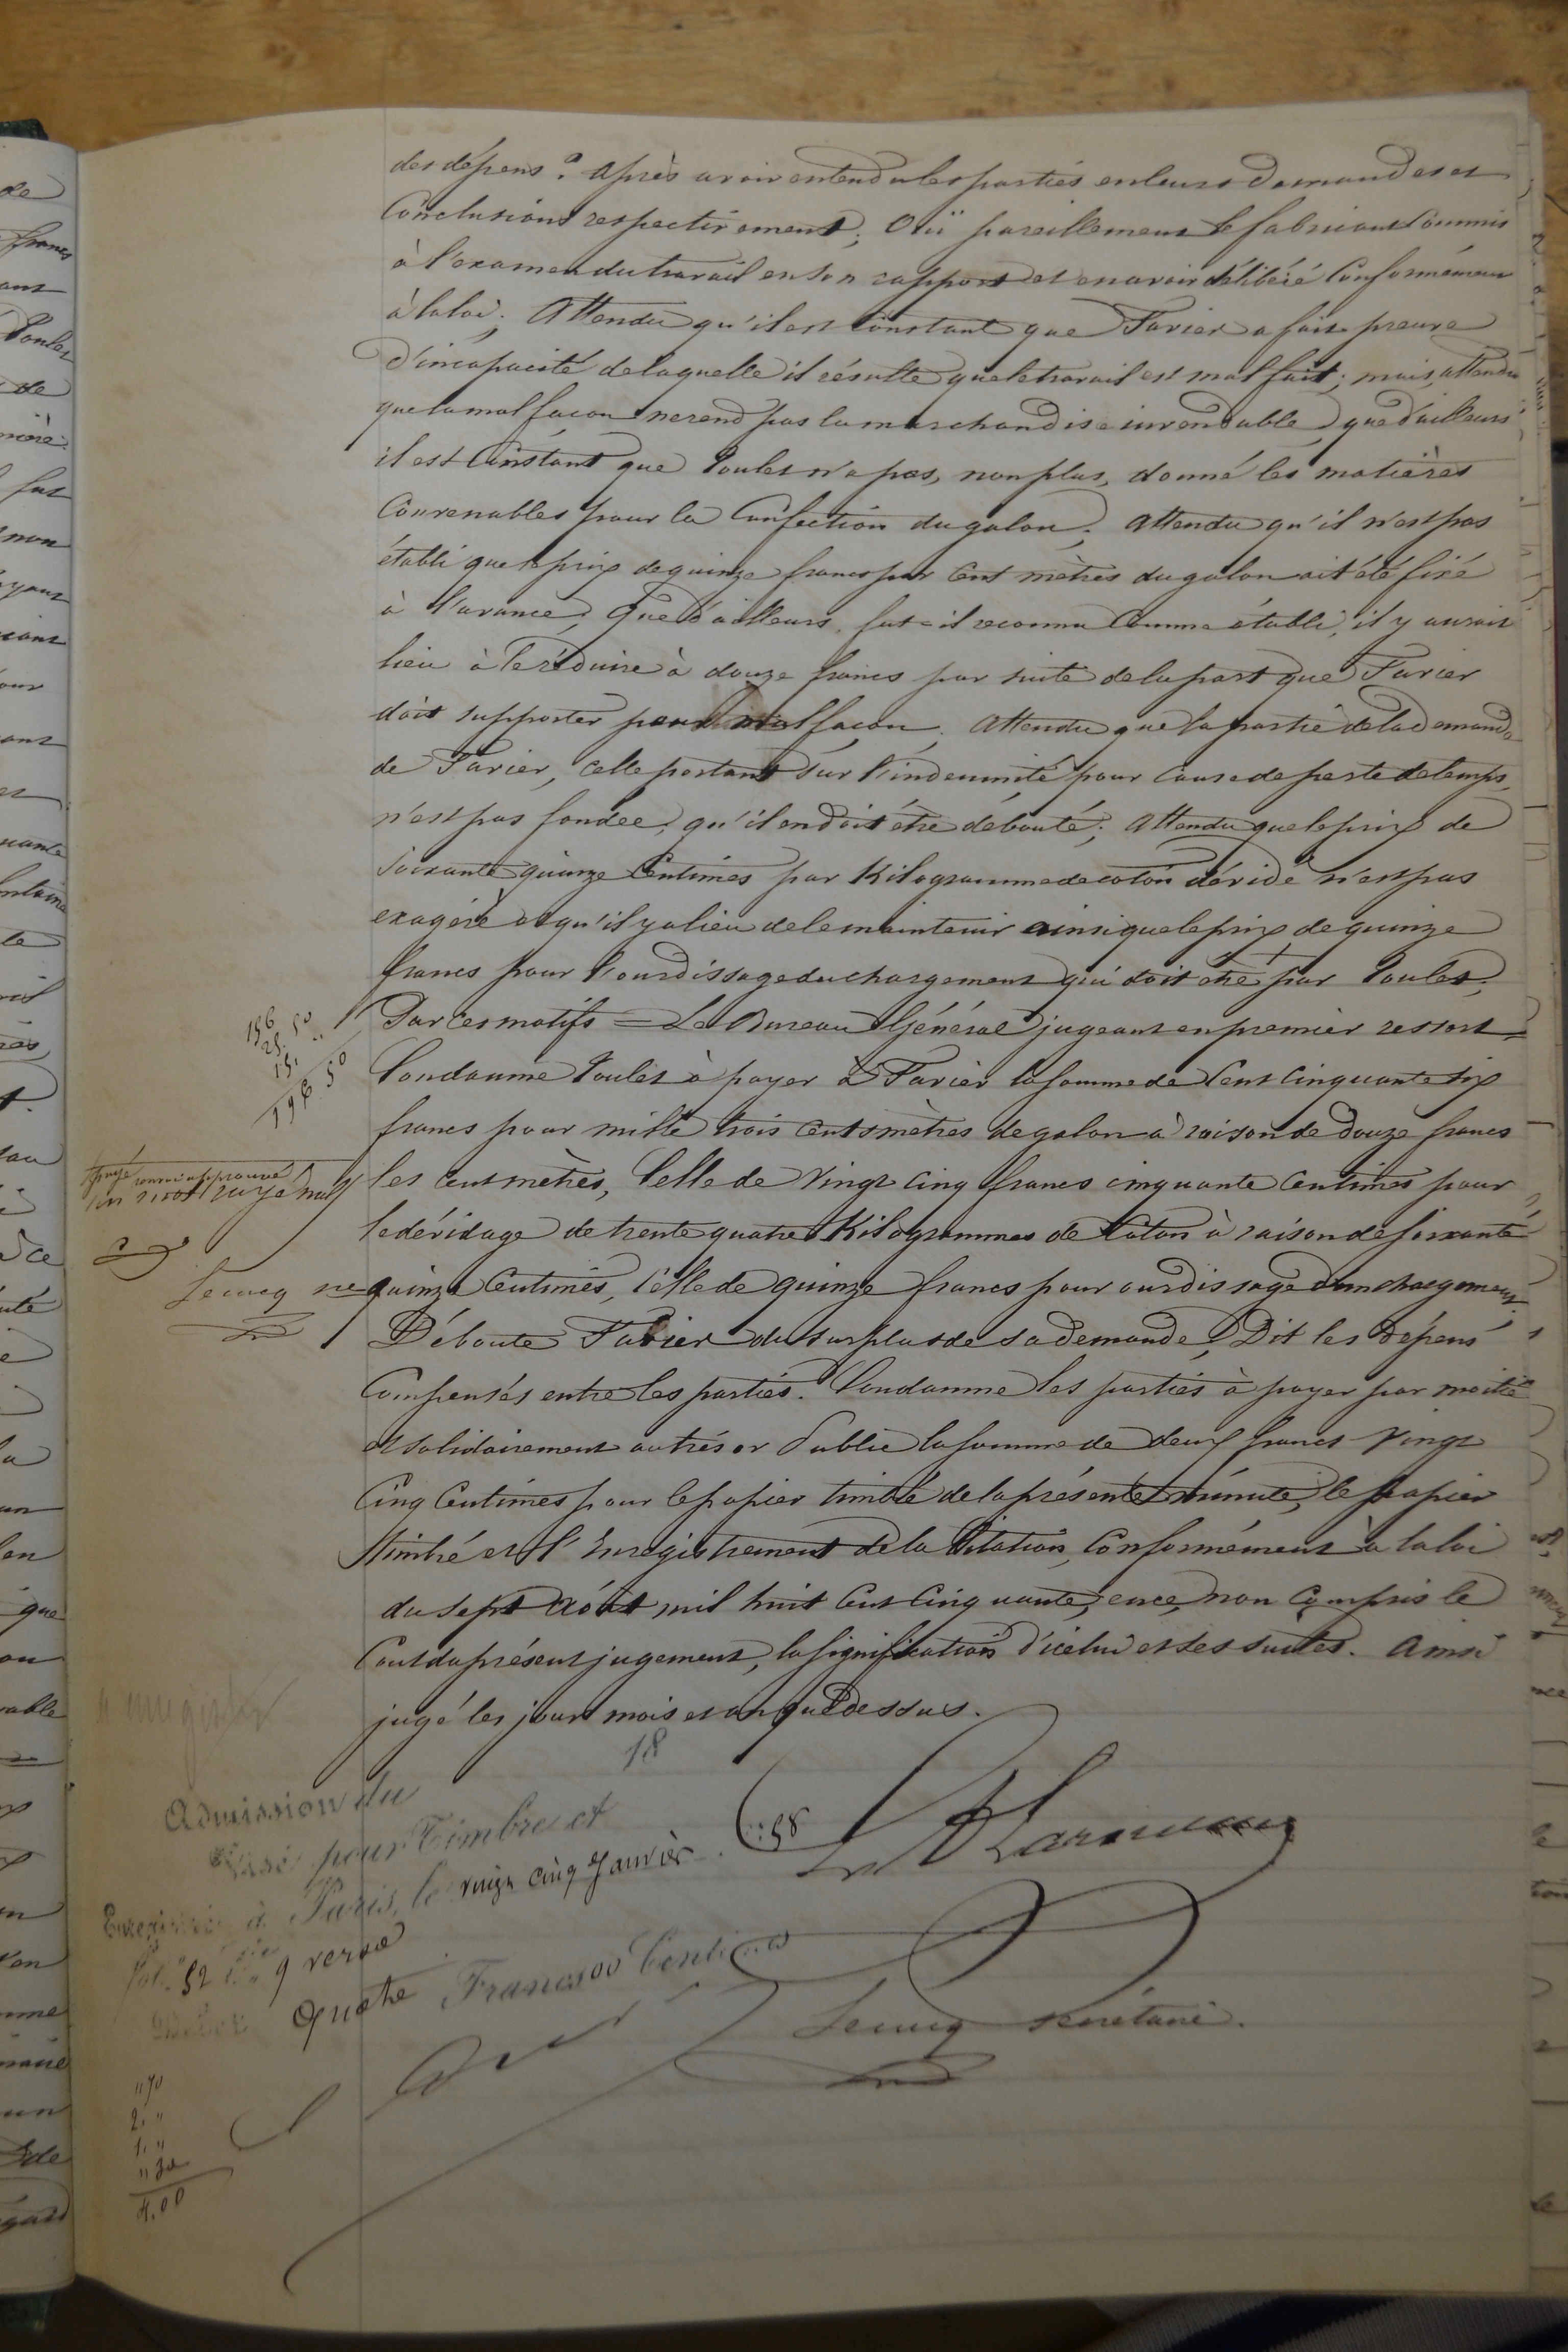 des dépens ? Après avoir entendu les parties en leurs demandes et
Conclusions respectivement ; Ouï pareillement le fabricant Commis
à l'examen du travail en son rapport et en avoir délibéré Conformément
à la loi ; Attendu qu'il est Constant que Favier a fait preuve
d'incapacité de laquelle il résulte que le travail est mal fait ; mais attendu
que la mal façon ne rend pas la marchandise invendable, que d'ailleurs
il est Constant que Poulet n'a pas, non plus, donné les matières
Convenables pour la Confection du galon ; Attendu qu'il n'est pas
établi que le prix de quinze francs par Cent mètres du galon ait été fixé
à l'avance ; Que d'ailleurs, fut-il reconnu Comme établi, il y aurait
lieu à le réduire à douze francs par suite de la part que Favier
doit supporter pour mal façon ; Attendu que la partie de la demande
de Favier, Celle portant sur l'indemnité pour Cause de perte de temps
n'est pas fondée, qu'il en doit être débouté ; Attendu que le prix de
soixante quinze Centimes par Kilogramme de coton dévidé n'est pas
exagéré et qu'il y a lieu de le maintenir ainsi que le prix de quinze
francs pour l'ourdissage du chargement qui doit être par Poulet ;
Par ces motifs = Le Bureau Général jugeant en premier ressort =
Condamne Poulet à payer à Favier la somme de Cent Cinquante six
francs pour mille trois Cents mètres de galon à raison de douze francs
les Cent mètres, Celle de Vingt Cinq francs cinquante Centimes pour
le dévidage de trente quatre Kilogrammes de Coton à raison de soixante
quinze Centimes, Celle de quinze francs pour ourdissage d'un chargement ;
Déboute Favier du surplus de sa demande, Dit les Dépens
Compensés entre les parties. Condamne les parties à payer par moitié
et solidairement au trésor Public la somme de deux francs Vingt
Cinq Centimes pour le papier timbré de la présente minute, le papier
timbré et l'Enregistrement de la Citation, Conformément à la loi
du sept Août mil huit Cent Cinquante, ence, non Compris le
Cout du présent jugement, la signification d'icelui et ses suites. Ainsi
jugé les jour mois et an que dessus.
156
25. 50
15. "
196. 50
payé renvoi approuvé
un mot rayé nul
Lecucq
18
Admission du
Visé pour Timbre et
Enregistré à Paris, le vingt cinq Janvier 58
fol. 52 9 verso
Quatre Francs 00 Centimes
Lecucq secrétaire.
" 70
2. "
1. "
" 30
4.00